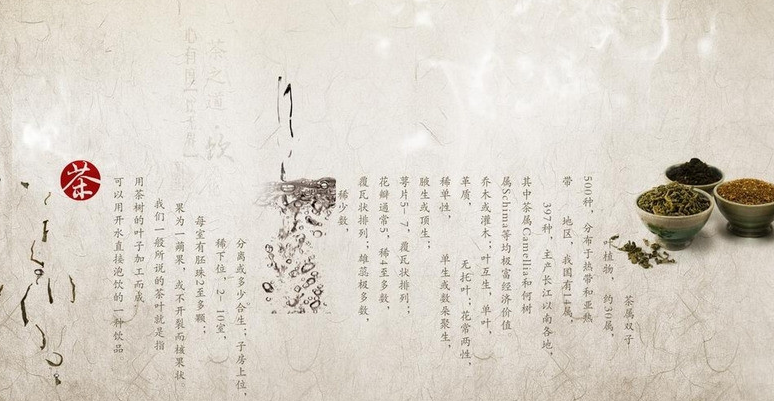 茶属双子
叶植物，约30属，
500种，分布于热带和亚热
带 地区，我国有14属，
397种，主产长江以南各地，
其中茶属Camellia和何树
属Schima等均极富经济价值
乔木或灌木；叶互生，单叶，
革质， 无托叶；花常两性，
稀单性， 单生或数朵聚生，
腋生或顶生；
萼片5-7，覆瓦状排列；
花瓣通常5，稀4至多数，
覆瓦状排列；雄蕊极多数，
稀少数，
分离或多少合生；子房上位，
稀下位，2-10室，
每室有胚珠2至多颗；
果为一蒴果，或不开裂而核果状
我们一般所说的茶叶就是指
用茶树的叶子加工而成，
可以用开水直接泡饮的一种饮品
茶
茶之道